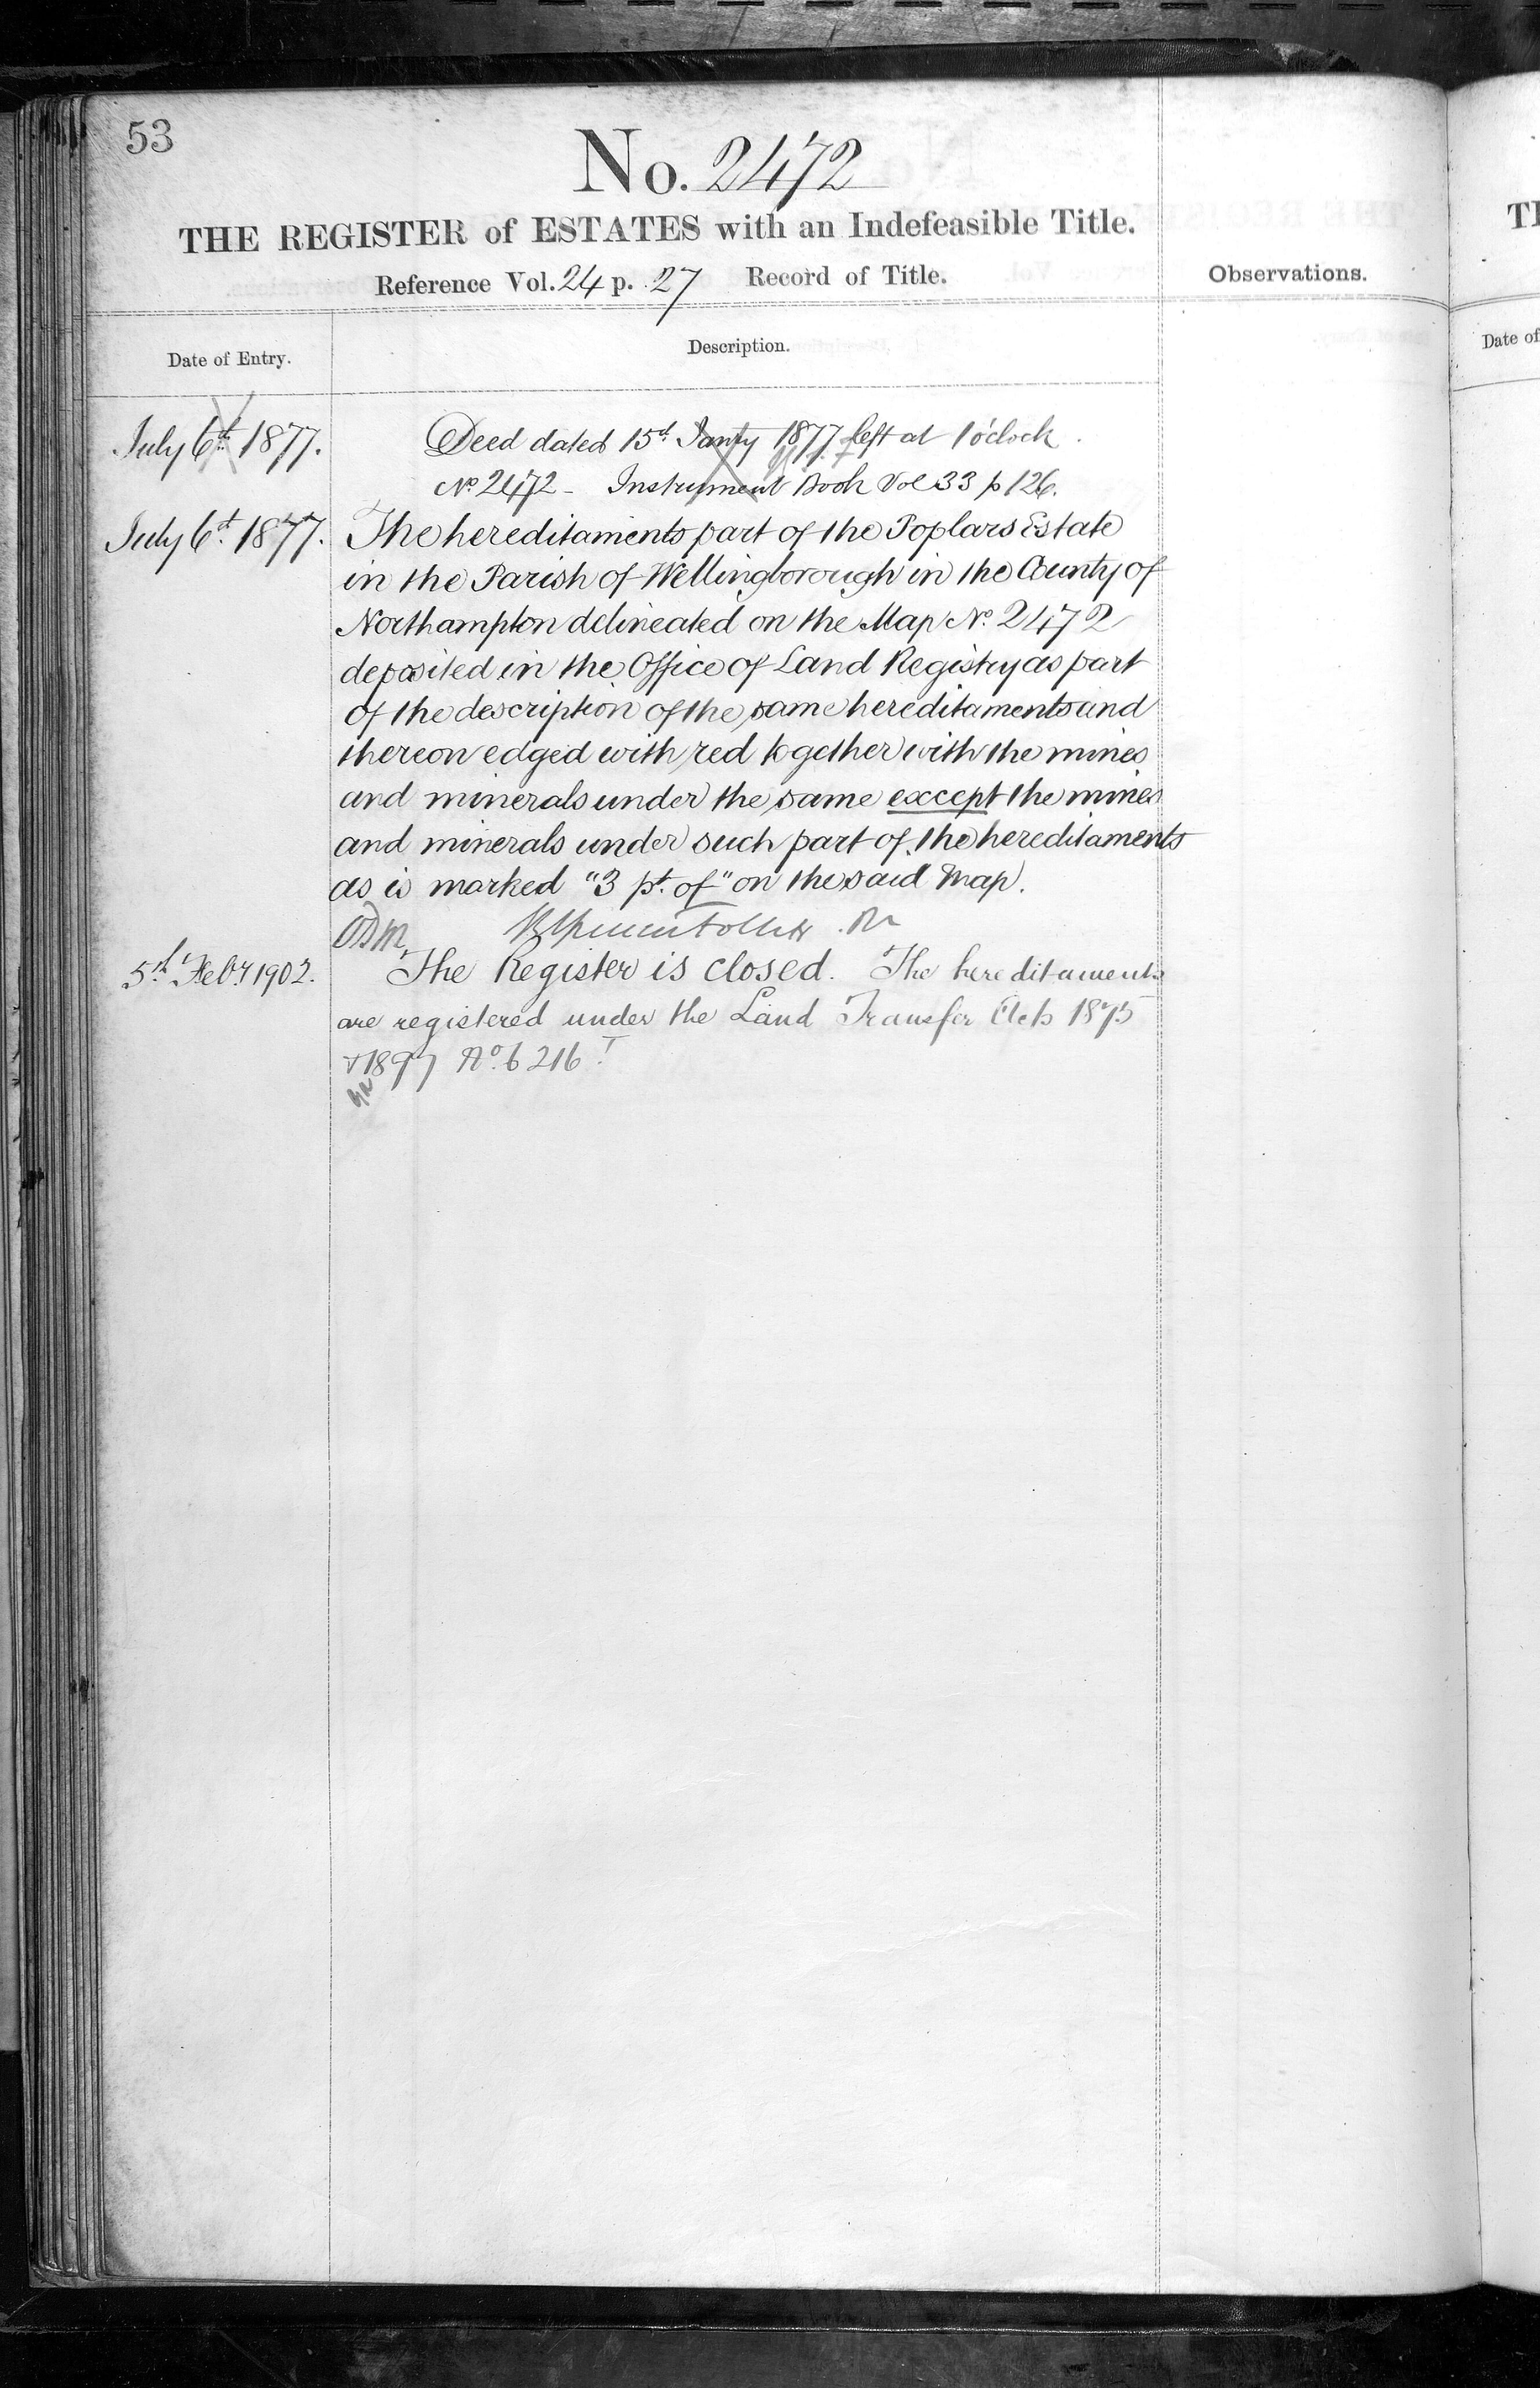 53
No. 2472
THE REGISTER of ESTATES with an Indefeasible Title.
Reference Vol. 24 p. 27 Record of Title.
Observations.
Date of Entry.
Description.
July 6th 1877. Deed dated 15th Jany 1877 left at 1 o'clock.
No. 2472 - Instrument Book Vol 33 p 126.
July 6th 1877. The hereditaments part of the Poplars Estate
in the Parish of Wellingborough in the County of
Northampton delineated on the Map No. 2472
deposited in the Office of Land Registry as part
of the description of the same hereditaments and
thereon edged with red together with the mines
and minerals under the same except the mines
and minerals under such part of the hereditaments
as is marked "3 pt. of" on the said Map.
5th Feby 1902. The Register is closed. The hereditaments
are registered under the Land Transfer Acts 1875
& 1897 No. 6216
Date of